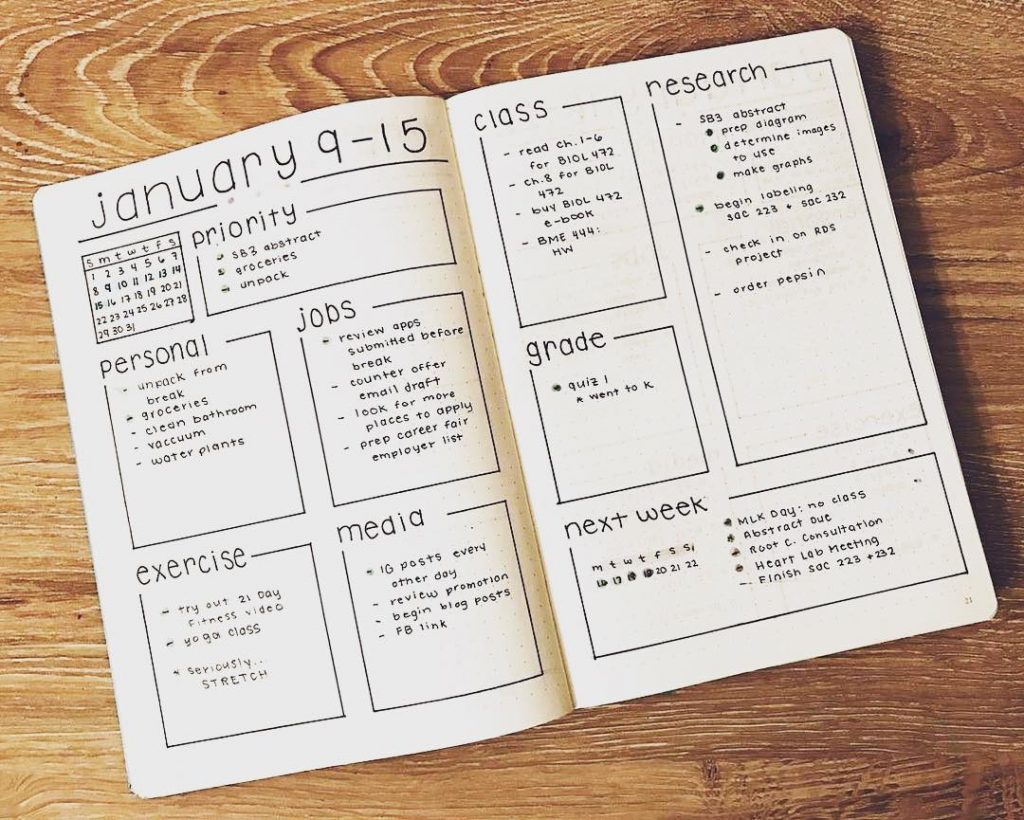 january 9-15
s m t w t f s
1 2 3 4 5 6 7
8 9 10 11 12 13 14
15 16 17 18 19 20 21
22 23 24 25 26 27 28
29 30 31
priority
SB3 abstract
groceries
unpack
personal
- unpack from
break
- groceries
- clean bathroom
- vaccuum
- water plants
jobs
- review apps
submitted before
break
- counter offer
email draft
- look for more
places to apply
- prep career fair
employer list
exercise
- try out 21 Day
Fitness video
- yoga class
* seriously..
STRETCH
media
- IG posts every
other day
- review promotion
- begin blog posts
- FB link
class
- read ch. 1-6
for BIOL 472
- ch. 8 for BIOL
472
- buy BIOL 472
e-book
- BME 444:
HW
grade
quiz 1
* went to K
research
- SB3 abstract
prep diagram
determine images
to use
make graphs
begin labeling
sac 223 + sac 232
- check in on RDS
project
- order pepsin
next week
m t w t f s s
16 17 18 19 20 21 22
MLK Day: no class
Abstract Due
Root C. Consultation
Heart Lab Meeting
- Finish sac 223 +232
21